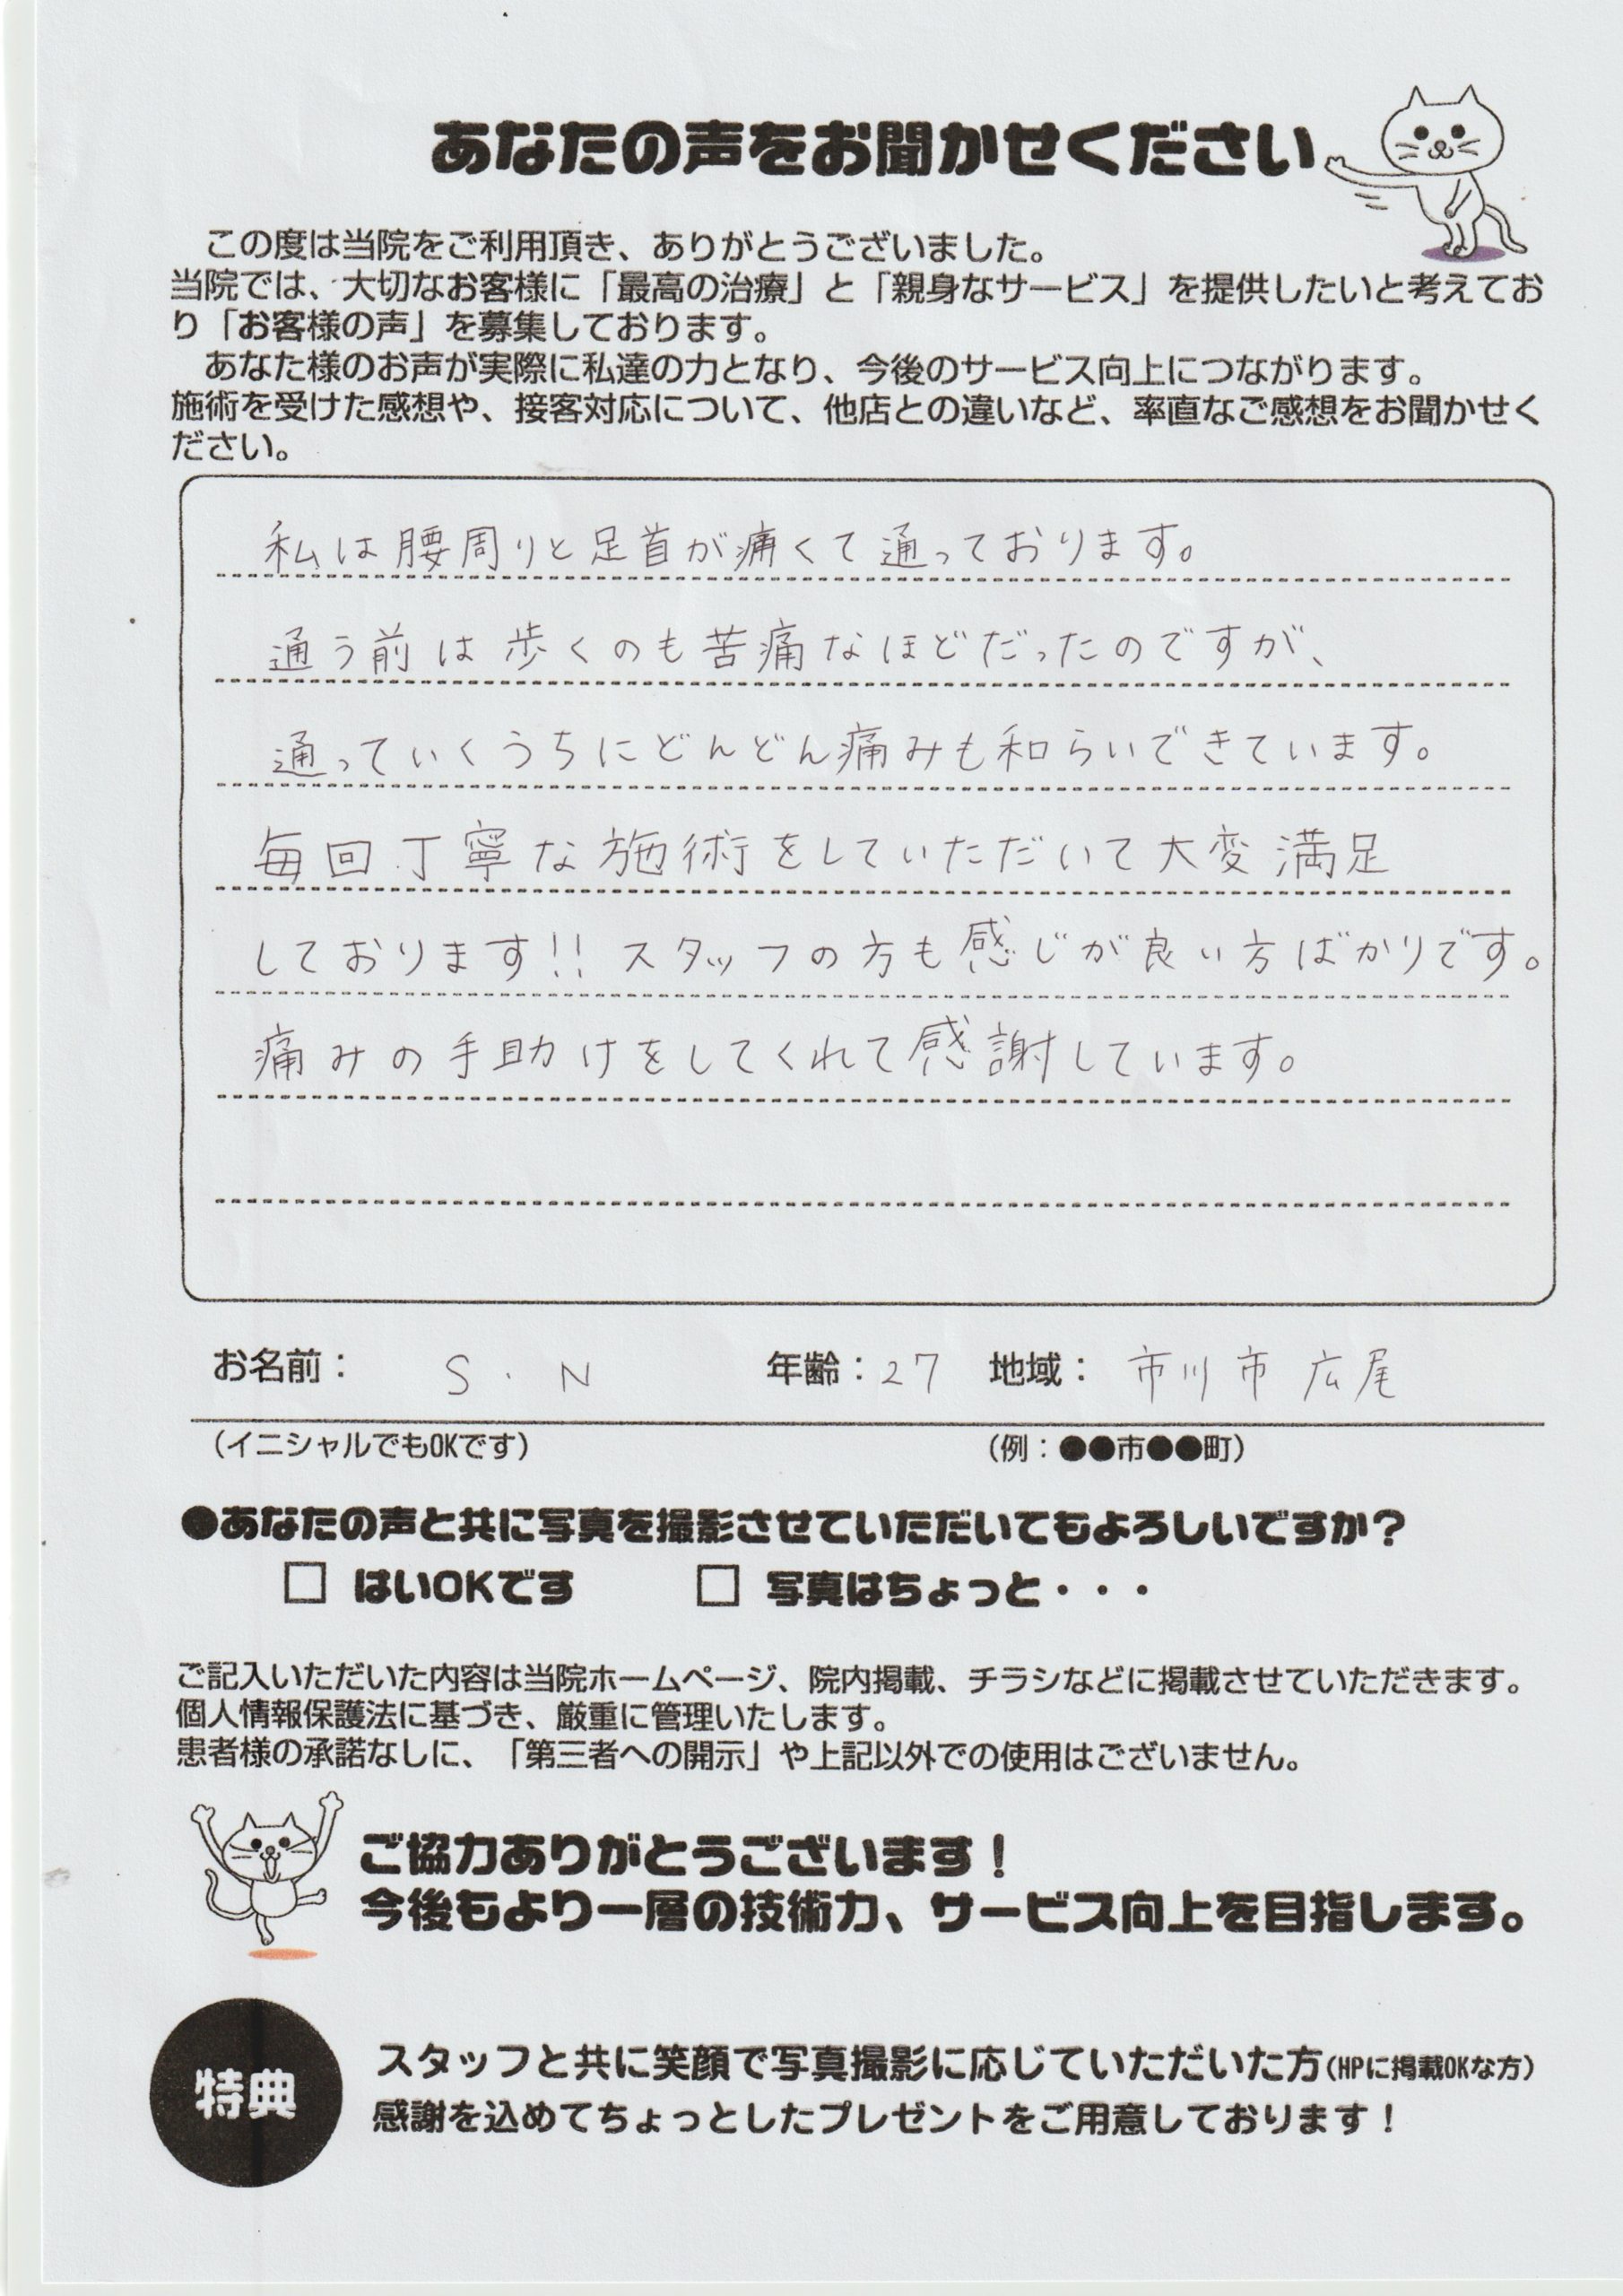 あなたの声をお聞かせください
この度は当院をご利用頂き、ありがとうございました。
当院では、大切なお客様に「最高の治療」と「親身なサービス」を提供したいと考えてお
り「お客様の声」を募集しております。
あなた様のお声が実際に私達の力となり、今後のサービス向上につながります。
施術を受けた感想や、接客対応について、他店との違いなど、率直なご感想をお聞かせく
ださい。
私は腰周りと足首が痛くて通っております。
通う前は歩くのも苦痛なほどだったのですが、
通っていくうちにどんどん痛みも和らいできています。
毎回丁寧な施術をしていただいて大変満足
しております!! スタッフの方も感じが良い方ばかりです。
痛みの手助けをしてくれて感謝しています。
お名前: S・N 年齢:27 地域: 市川市広尾
(イニシャルでもOKです) (例:●●市●●町)
●あなたの声と共に写真を撮影させていただいてもよろしいですか?
□ はいOKです □ 写真はちょっと・・・
ご記入いただいた内容は当院ホームページ、院内掲載、チラシなどに掲載させていただきます。
個人情報保護法に基づき、厳重に管理いたします。
患者様の承諾なしに、「第三者への開示」や上記以外での使用はございません。
ご協力ありがとうございます!
今後もより一層の技術力、サービス向上を目指します。
特典
スタッフと共に笑顔で写真撮影に応じていただいた方(HPに掲載OKな方)
感謝を込めてちょっとしたプレゼントをご用意しております!